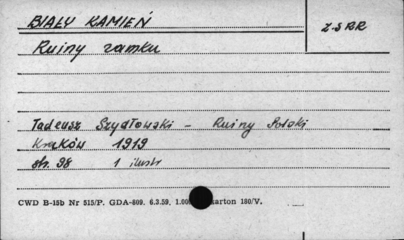 BIAŁY KAMIEŃ
Z.S.R.R
Ruiny zamku
Tadeusz Szydłowski - Ruiny Polski
Kraków 1919
str. 98 1 ilustr
CWD B-15b Nr 515/P. GDA-809. 6.3.59. 1.00 karton 180/V.